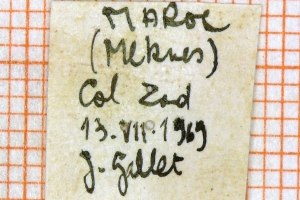 MAROC
(Meknes)
Col Zad
13.VII.1969
J. Gallet